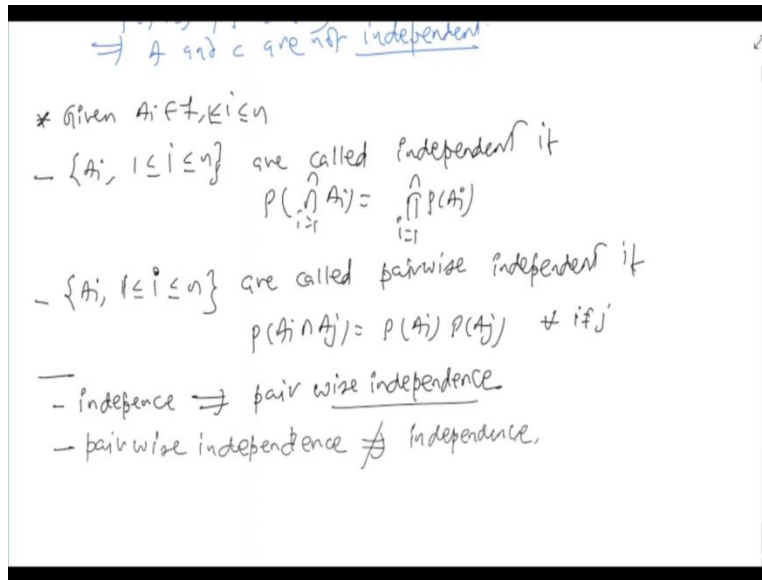 ⇒ A and C are not independent
* Given Ai ∈ F, 1≤i≤n
- {Ai, 1≤i≤n} are called independent if
P(⋂_{i=1}^{n} Ai) = ∏_{i=1}^{n} P(Ai)
- {Ai, 1≤i≤n} are called pairwise independent if
P(Ai ∩ Aj) = P(Ai) P(Aj) ∀ i≠j
- indepence ⇒ pair wise independence
- pairwise independence ⇏ independence.